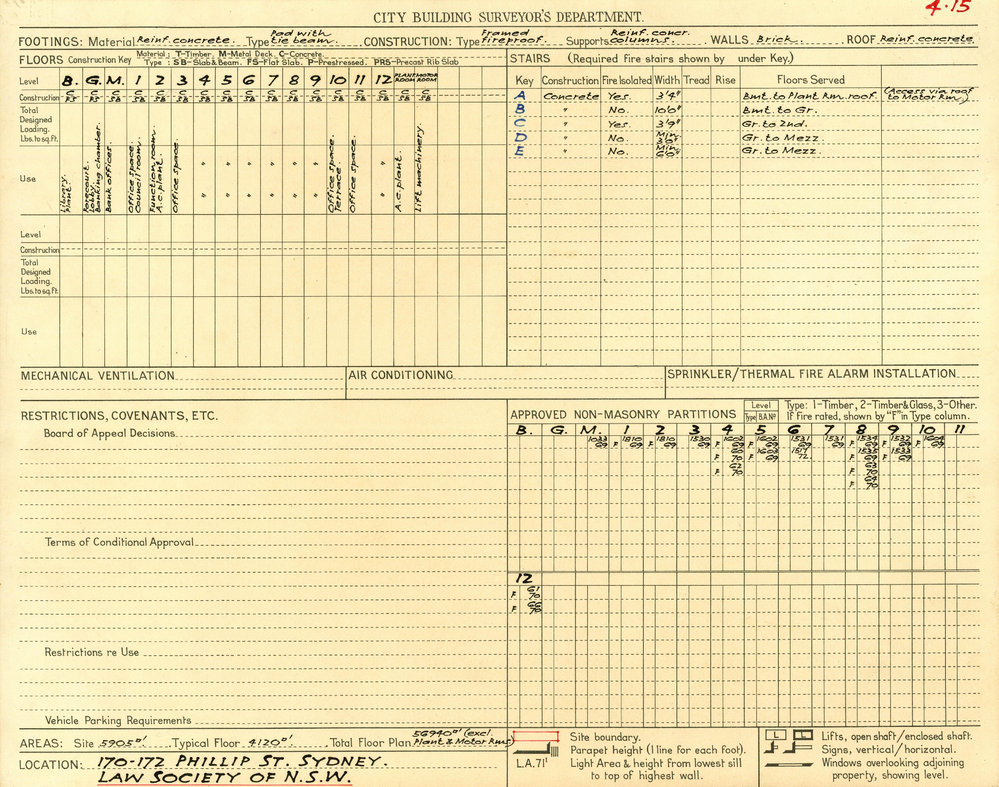 4.15
CITY BUILDING SURVEYOR'S DEPARTMENT.
FOOTINGS: Material Reinf. concrete. Type Pad with tie beam. CONSTRUCTION: Type Framed fireproof. Supports Reinf. concr. columns. WALLS Brick. ROOF Reinf. concrete
FLOORS Construction Key Material: T-Timber, M-Metal Deck, C-Concrete.
Type: SB-Slab & Beam. FS-Flat Slab. P-Prestressed. PRS-Precast Rib Slab
Level B. G. M. 1 2 3 4 5 6 7 8 9 10 11 12 PLANT ROOM MOTOR ROOM
Construction C FS C FS C SB C SB C SB C SB C SB C SB C SB C SB C SB C SB C SB C SB C SB C SB C SB
Total Designed Loading. Lbs. to sq. ft.
Use
Library. Plant.
Forecourt. Lobby.
Banking chamber. Bank offices.
Office space. Council room.
Function room. A.c. plant.
Office space.
" " " " " "
" " " " " "
Office space. Terrace.
Office space.
"
"
A.c. plant.
Lift machinery.
Level
Construction
Total Designed Loading. Lbs. to sq. ft.
Use
STAIRS (Required fire stairs shown by under Key.)
Key Construction Fire Isolated Width Tread Rise Floors Served
A Concrete Yes. 3'4" Bmt. to Plant Rm. roof. (Access via roof to Motor Rm.)
B " No. 10'0" Bmt. to Gr.
C " Yes. 3'9" Gr. to 2nd.
D " No. Min. 3'0" Gr. to Mezz.
E " No. Min. 6'0" Gr. to Mezz.
MECHANICAL VENTILATION
AIR CONDITIONING
SPRINKLER/THERMAL FIRE ALARM INSTALLATION
RESTRICTIONS, COVENANTS, ETC.
Board of Appeal Decisions
Terms of Conditional Approval
Restrictions re Use
Vehicle Parking Requirements
APPROVED NON-MASONRY PARTITIONS
Level
Type B.A. No
Type: 1-Timber, 2-Timber & Glass, 3-Other.
If Fire rated, shown by "F" in Type column.
B. G. M. 1 2 3 4 5 6 7 8 9 10 11
1033 69 F 1810 69 F 1810 69 F 1530 69 F 1602 69 F 1602 69 F 1531 69 F 1531 69 F 1534 69 F 1532 69 F 1604 69
F 60 70 F 1603 69 1517 72 F 1535 69 F 1533 69
F 62 70 F 63 70
F 64 70
12
F 61 70
F 66 70
AREAS: Site 5905 □'. Typical Floor 4120 □'. Total Floor Plan 56940 □' (excl. Plant & Motor Rms)
LOCATION: 170-172 PHILLIP ST. SYDNEY.
LAW SOCIETY OF N.S.W.
Site boundary.
Parapet height (1 line for each foot).
L.A. 71' Light Area & height from lowest sill
to top of highest wall.
L L Lifts, open shaft/enclosed shaft.
Signs, vertical/horizontal.
Windows overlooking adjoining
property, showing level.